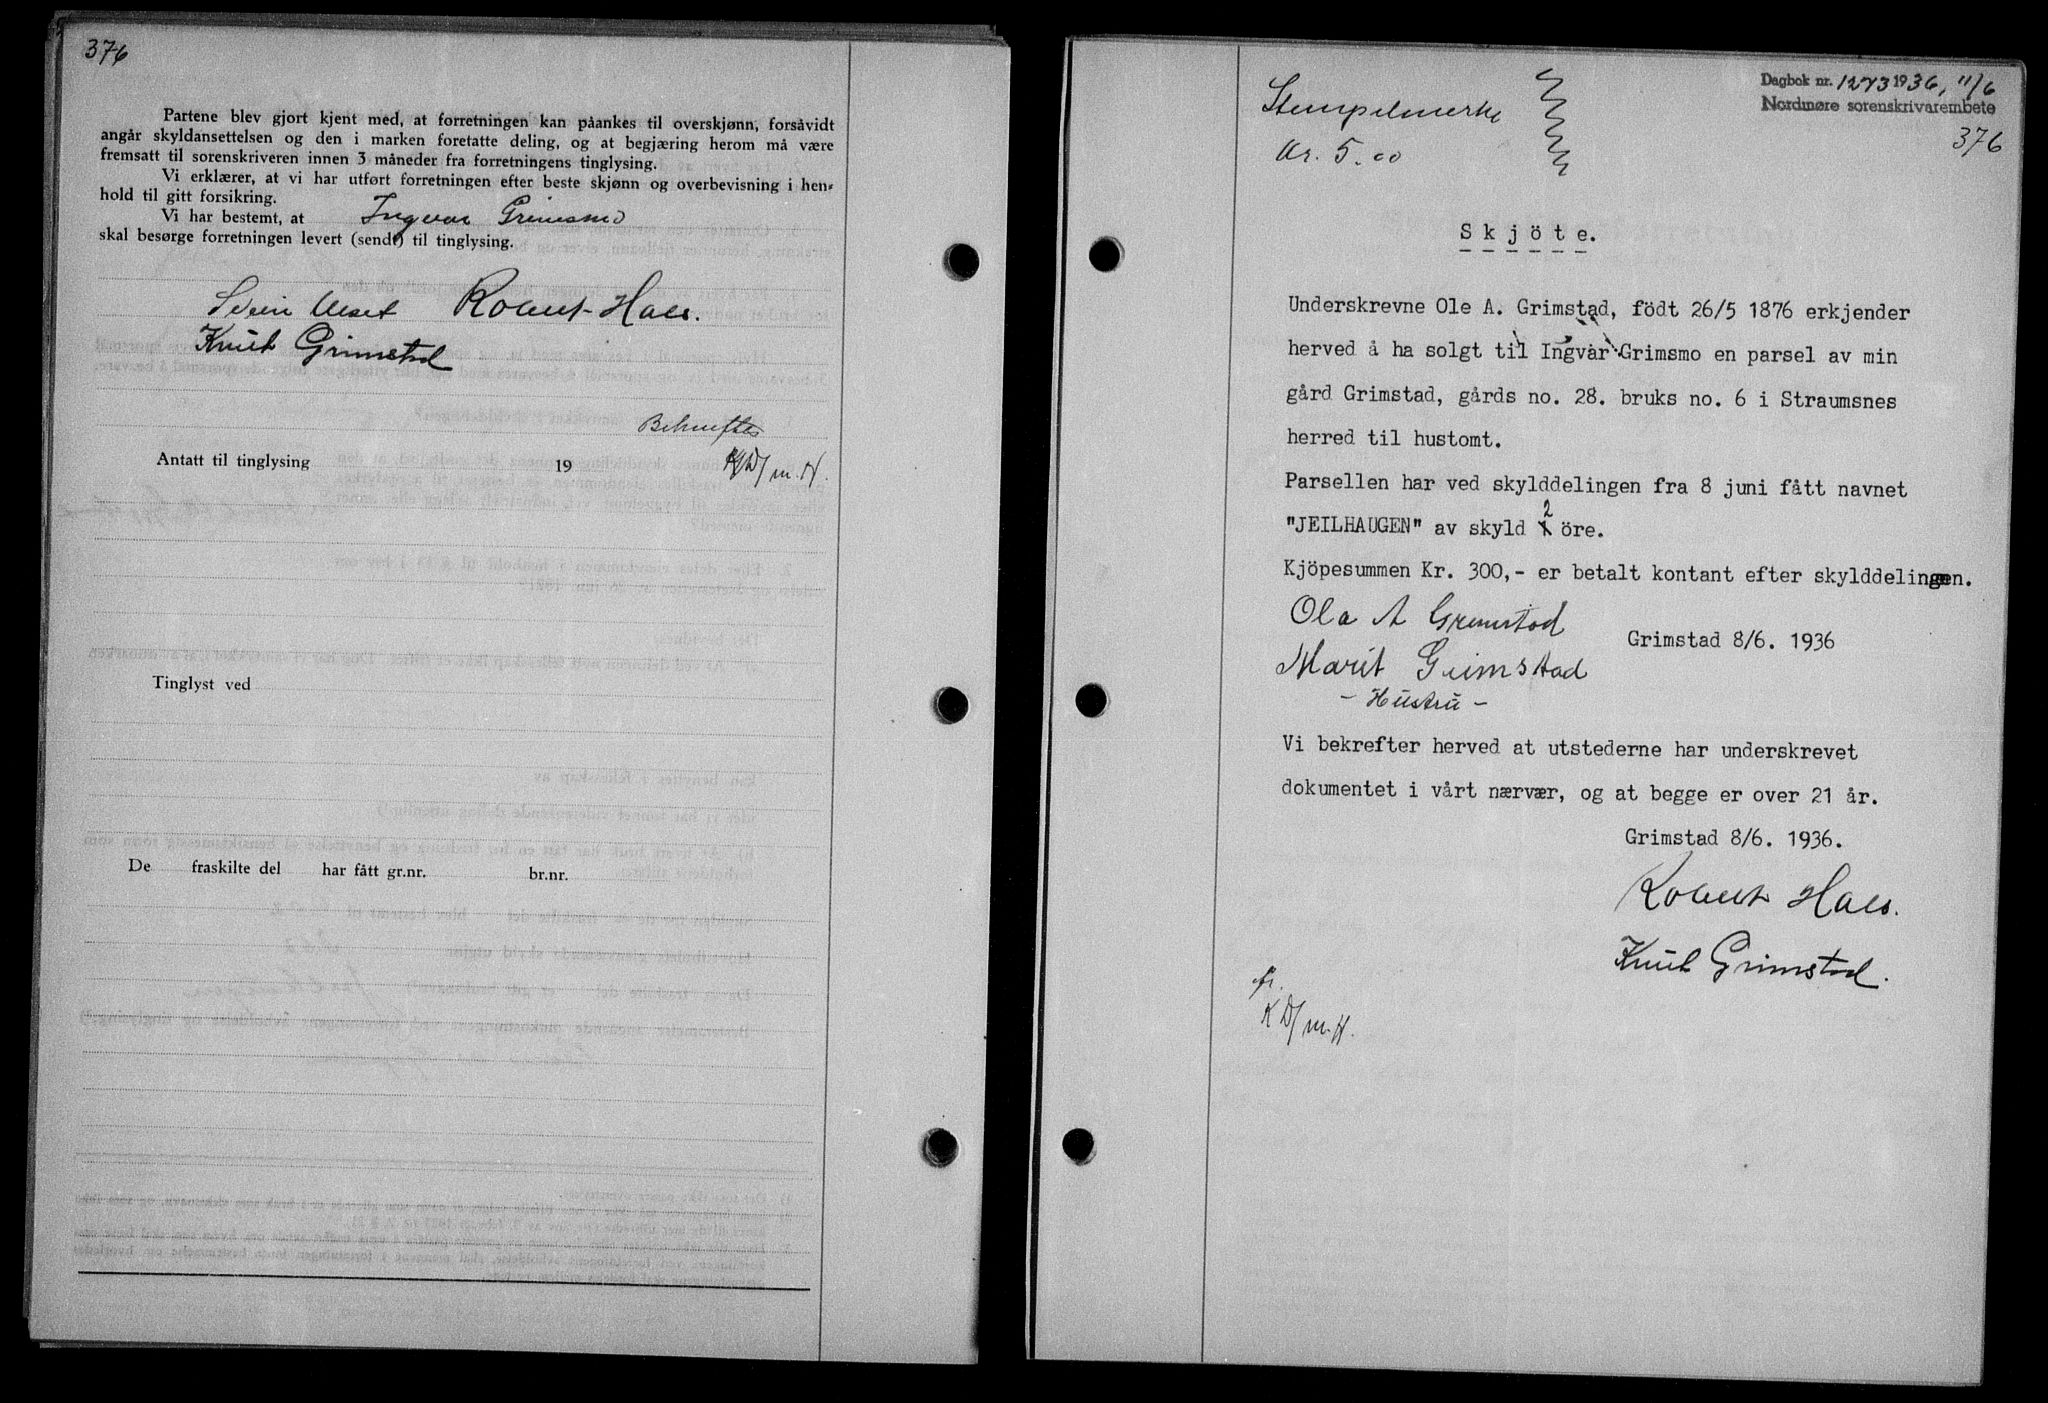 376
Partene blev gjort kjent med, at forretningen kan påankes til overskjønn, forsåvidt
angår skyldansettelsen og den i marken foretatte deling, og at begjæring herom må være
fremsatt til sorenskriveren innen 3 måneder fra forretningens tinglysing.
Vi erklærer, at vi har utført forretningen efter beste skjønn og overbevisning i hen-
hold til gitt forsikring.
Vi har bestemt, at Ingvar Grimsmo
skal besørge forretningen levert (sendt) til tinglysing.
Robert Hals.
Knut Grimstad
Antatt til tinglysing 19
Tinglyst ved
De fraskilte del har fått gr.nr. br.nr.
Dagbok nr. 1273 1936, 11/6
Nordmøre sorenskrivarembete
376
Stempelmerke
Kr. 5.00
Skjöte.
Underskrevne Ole A. Grimstad, födt 26/5 1876 erkjender
herved å ha solgt til Ingvar Grimsmo en parsel av min
gård Grimstad, gårds no. 28. bruks no. 6 i Straumsnes
herred til hustomt.
Parsellen har ved skylddelingen fra 8 juni fått navnet
"JEILHAUGEN" av skyld 2 öre.
Kjöpesummen Kr. 300,- er betalt kontant efter skylddelingen.
Ola A Grimstad
Grimstad 8/6. 1936
Marit Grimstad
- Hustru -
Vi bekrefter herved at utstederne har underskrevet
dokumentet i vårt nærvær, og at begge er over 21 år.
Grimstad 8/6. 1936.
Robert Hals.
Knut Grimstad.
KD/m.H.